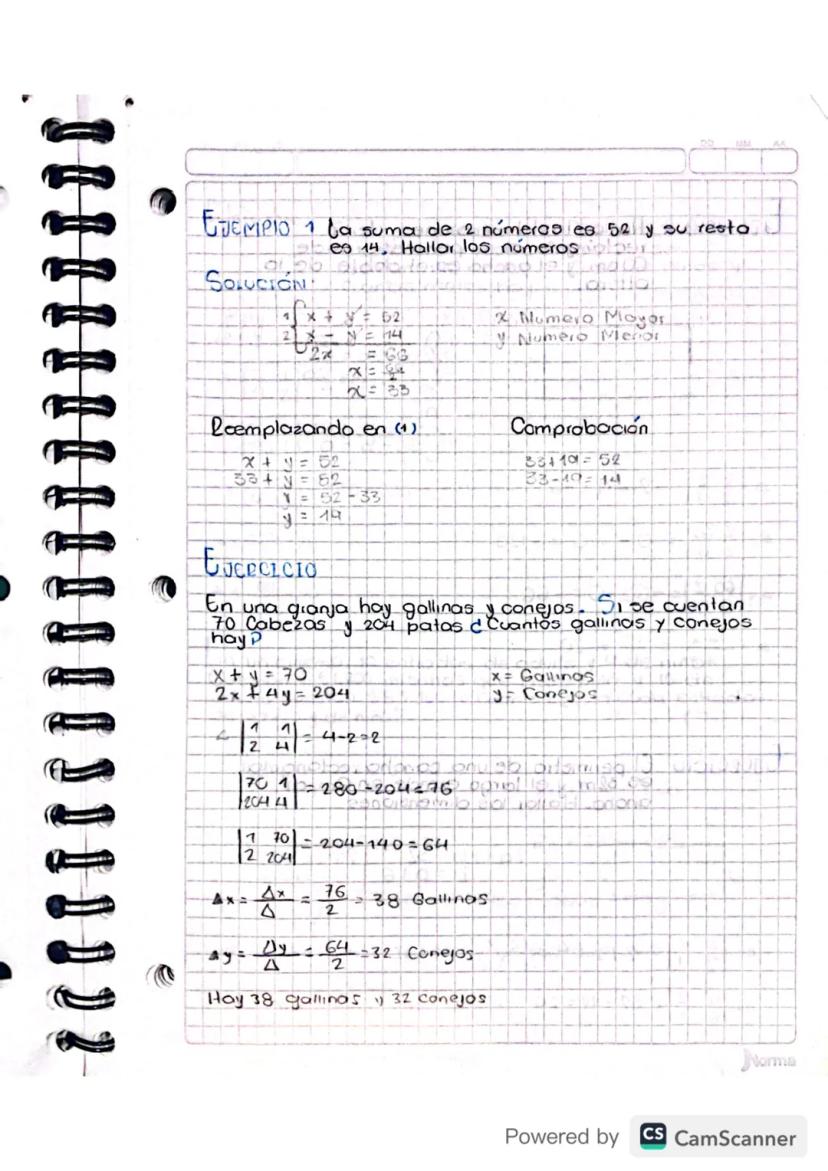 DD MM AA
EJEMPLO 1 La suma de 2 números es 52 y su resto
es 14. Hallar los números
SOLUCIÓN:
1 { x + y = 52
2 { x - y = 14
2x = 66
x =
x = 33
x Numero Mayor
y Numero Menor
Reemplazando en (1)
x + y = 52
33 + y = 52
y = 52 - 33
y = 19
Comprobación
33+19 = 52
33-19 = 14
EJERCICIO
En una granja hay gallinas y conejos. Si se cuentan
70 Cabezas y 204 patas ¿Cuantos gallinas y conejos
hay?
x + y = 70
2x + 4y = 204
x = Gallinas
y = Conejos
|1 1|
|2 4| = 4-2=2
|70 1|
|204 4| = 280-204=76
|1 70|
|2 204| = 204-140=64
Δx = Δx/Δ = 76/2 = 38 Gallinas
Δy = Δy/Δ = 64/2 = 32 Conejos
Hay 38 gallinas y 32 conejos
Norma
Powered by CS CamScanner